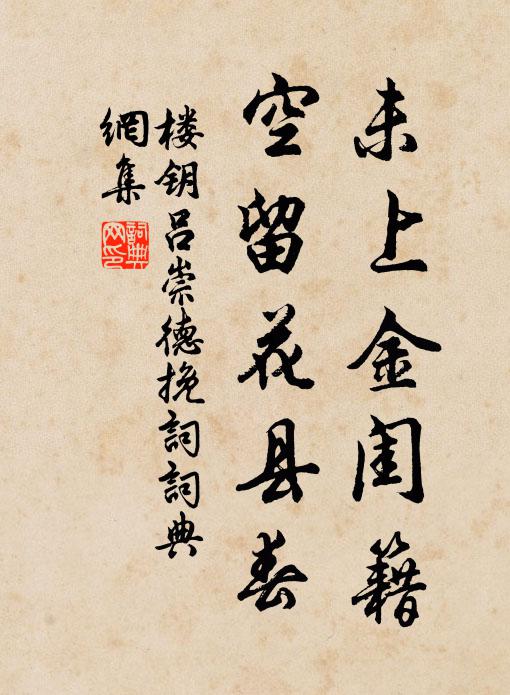 未上金闺籍
空留花县春
楼钥吕崇德挽词詞典
網集
詞典网印